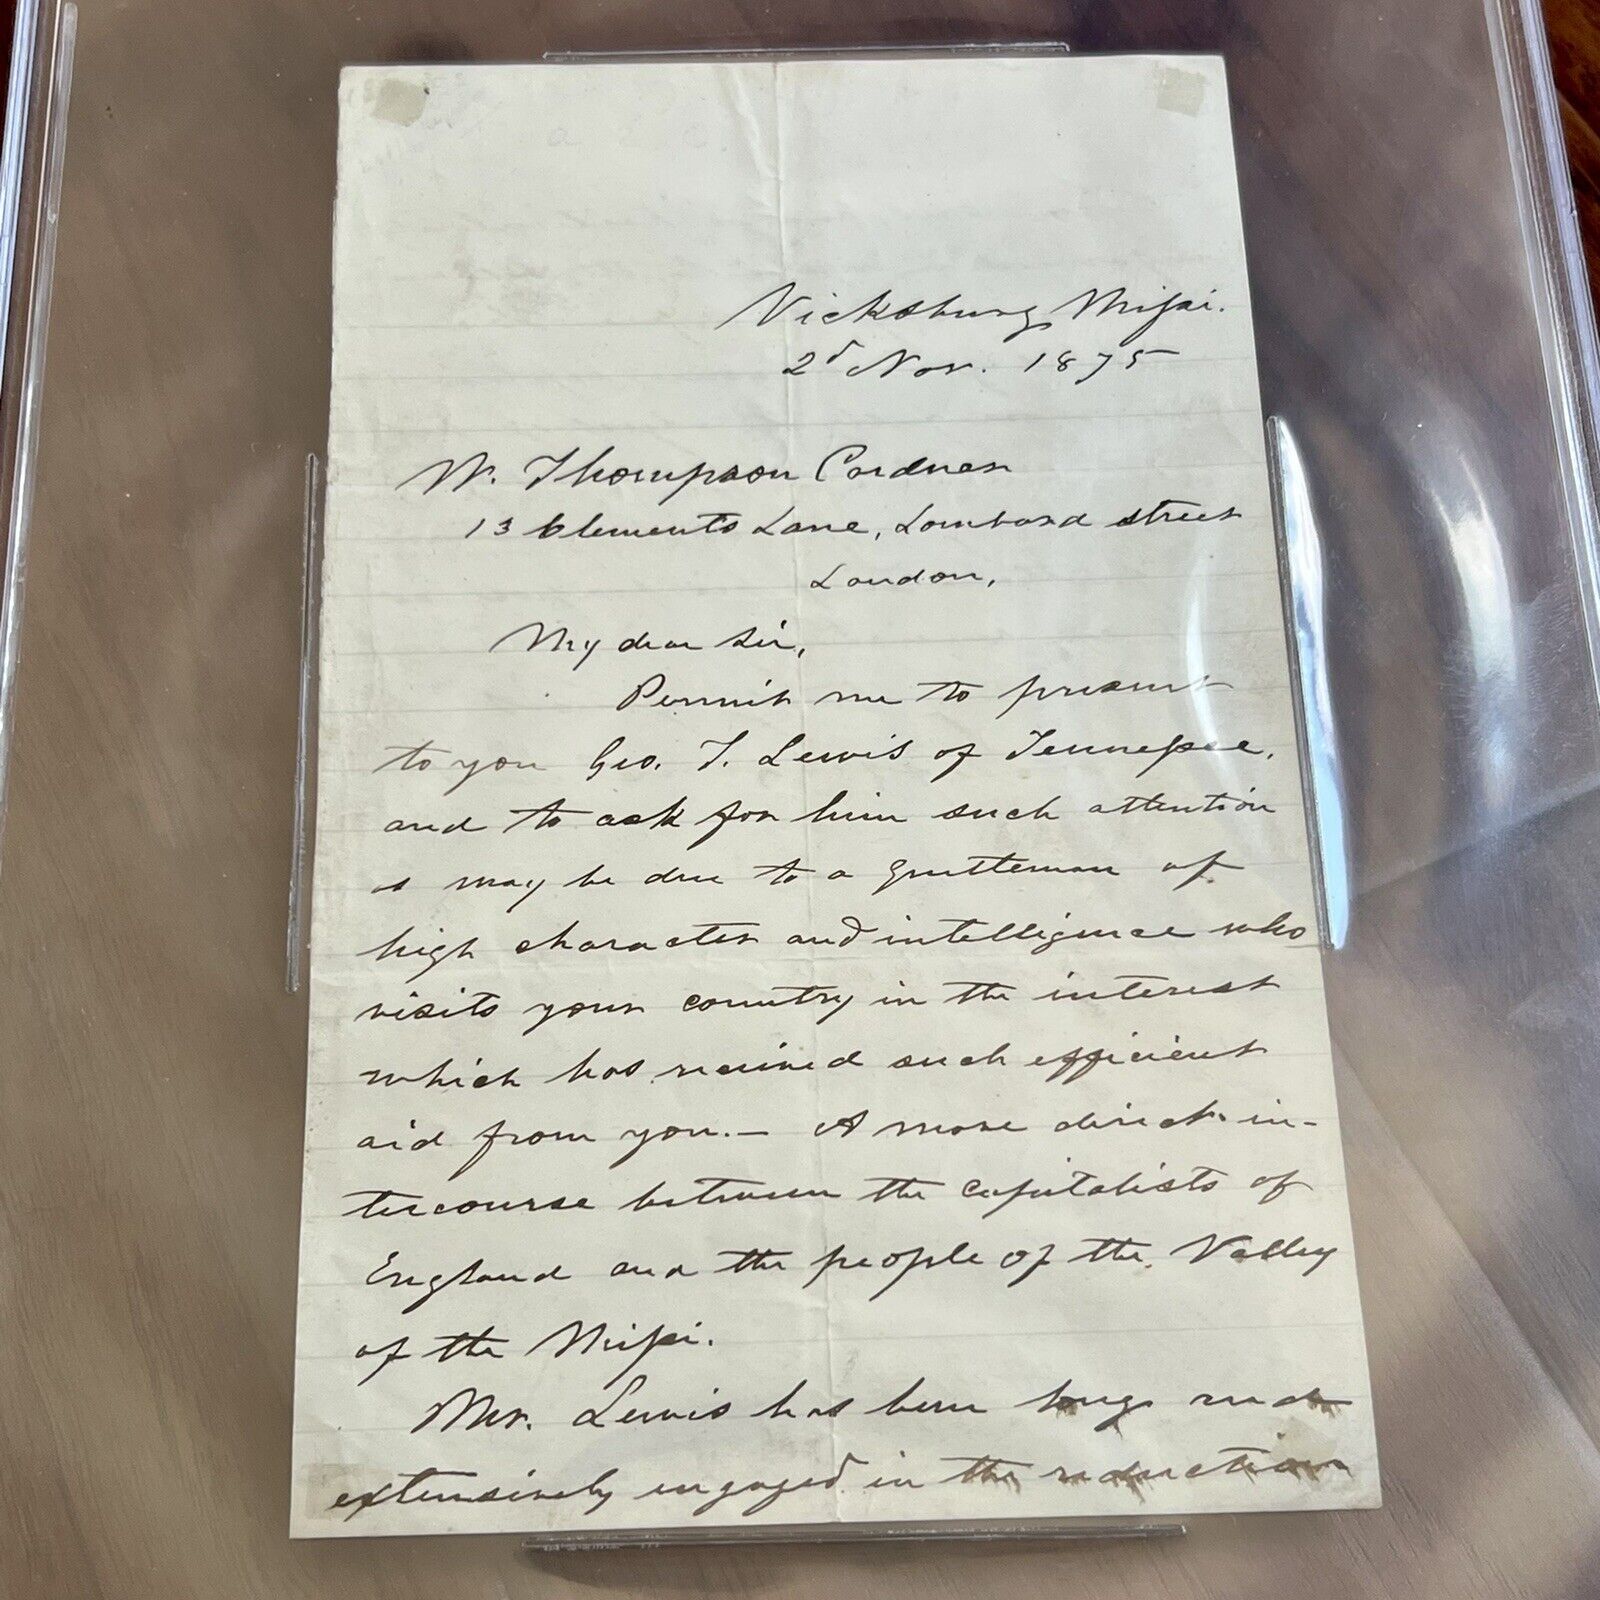 Vicksburg, Missi.
2d Nov. 1875
W. Thompson Cordner
13 Clements Lane, Lombard street
London,
My dear Sir,
Permit me to present
to you Geo. T. Lewis of Tennessee,
and to ask for him such attention
as may be due to a gentleman of
high character and intelligence who
visits your country in the interest
which has received such efficient
aid from you.— A more direct in-
tercourse between the capitalists of
England and the people of the Valley
of the Missi.
Mr. Lewis has been long and
extensively engaged in the reduction